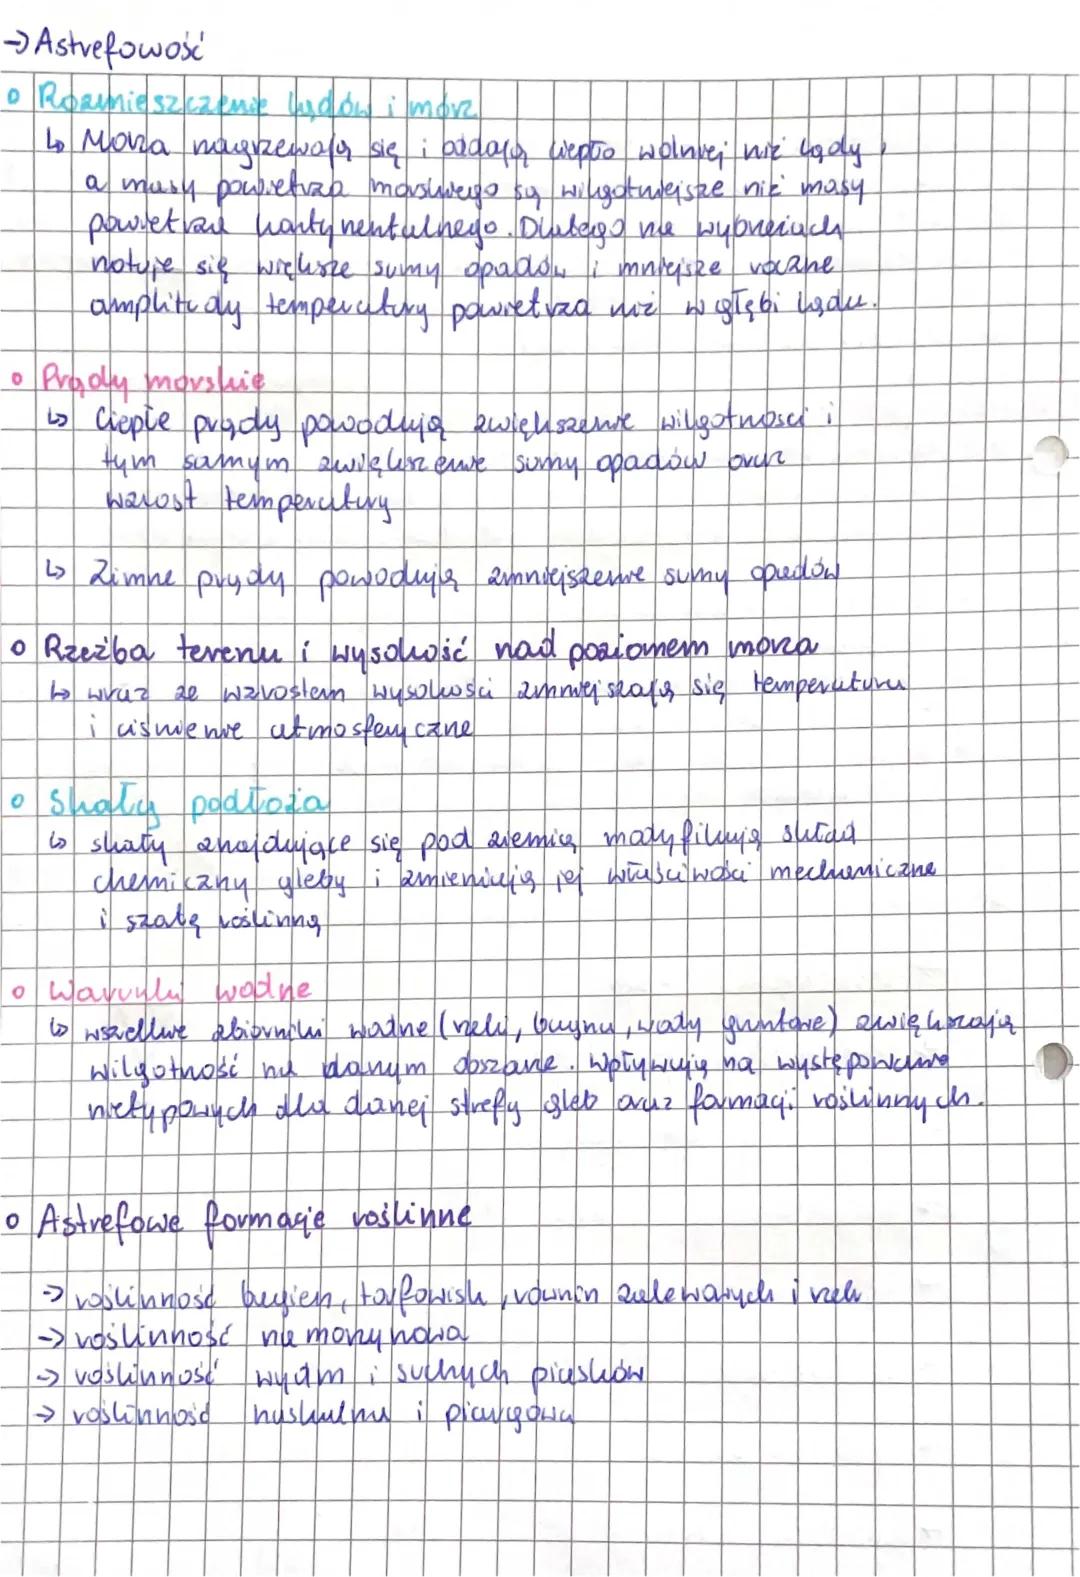 → Astrefowość
o Rozmieszczenie lądów i mórz
↳ Morza nagrzewają się i oddają ciepło wolniej niż lądy,
a masy powietrza morskiego są wilgotniejsze niż masy
powietrza kontynentalnego. Dlatego na wybrzeżach
notuje się większe sumy opadów i mniejsze roczne
amplitudy temperatury powietrza niż w głębi lądu.
o Prądy morskie
↳ Ciepłe prądy powodują zwiększenie wilgotności i
tym samym zwiększenie sumy opadów oraz
wzrost temperatury
↳ Zimne prądy powodują zmniejszenie sumy opadów
o Rzeźba terenu i wysokość nad poziomem morza
↳ wraz ze wzrostem wysokości zmniejszają się temperatura
i ciśnienie atmosferyczne
o Skały podłoża
↳ skały znajdujące się pod ziemią modyfikują skład
chemiczny gleby i zmieniają jej właściwości mechaniczne
i szatę roślinną
o Warunki wodne
↳ wszelkie zbiorniki wodne (rzeki, bagna, wody guntowe) zwiększają
wilgotność na danym obszarze. Wpływają na występowanie
nietypowych dla danej strefy gleb oraz formacji roślinnych.
o Astrefowe formacje roślinne
→ roślinność bagien, torfowisk, równin zalewanych i rzek
→ roślinność namorzynowa
→ roślinność wydm i suchych piasków
→ roślinność naskalna i piargowa